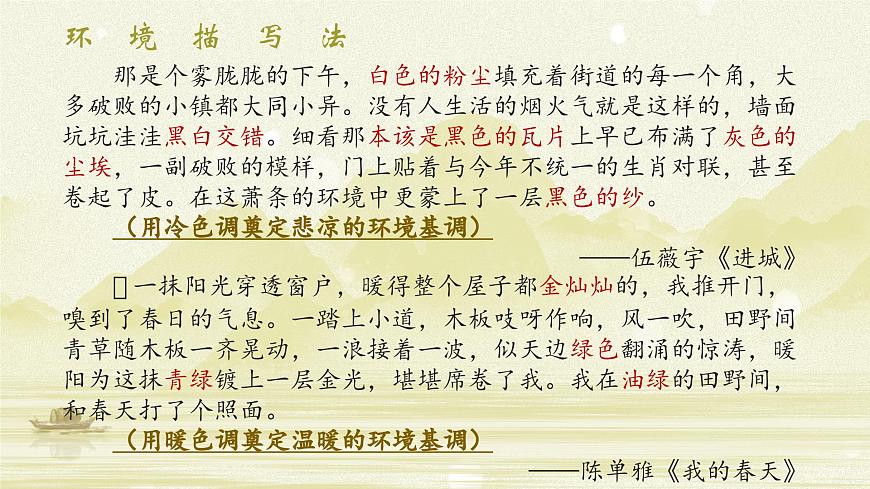 环境描写法
那是个雾胧胧的下午，白色的粉尘填充着街道的每一个角，大
多破败的小镇都大同小异。没有人生活的烟火气就是这样的，墙面
坑坑洼洼黑白交错。细看那本该是黑色的瓦片上早已布满了灰色的
尘埃，一副破败的模样，门上贴着与今年不统一的生肖对联，甚至
卷起了皮。在这萧条的环境中更蒙上了一层黑色的纱。
（用冷色调奠定悲凉的环境基调）
——伍薇宇《进城》
一抹阳光穿透窗户，暖得整个屋子都金灿灿的，我推开门，
嗅到了春日的气息。一踏上小道，木板吱呀作响，风一吹，田野间
青草随木板一齐晃动，一浪接着一波，似天边绿色翻涌的惊涛，暖
阳为这抹青绿镀上一层金光，堪堪席卷了我。我在油绿的田野间，
和春天打了个照面。
（用暖色调奠定温暖的环境基调）
——陈单雅《我的春天》